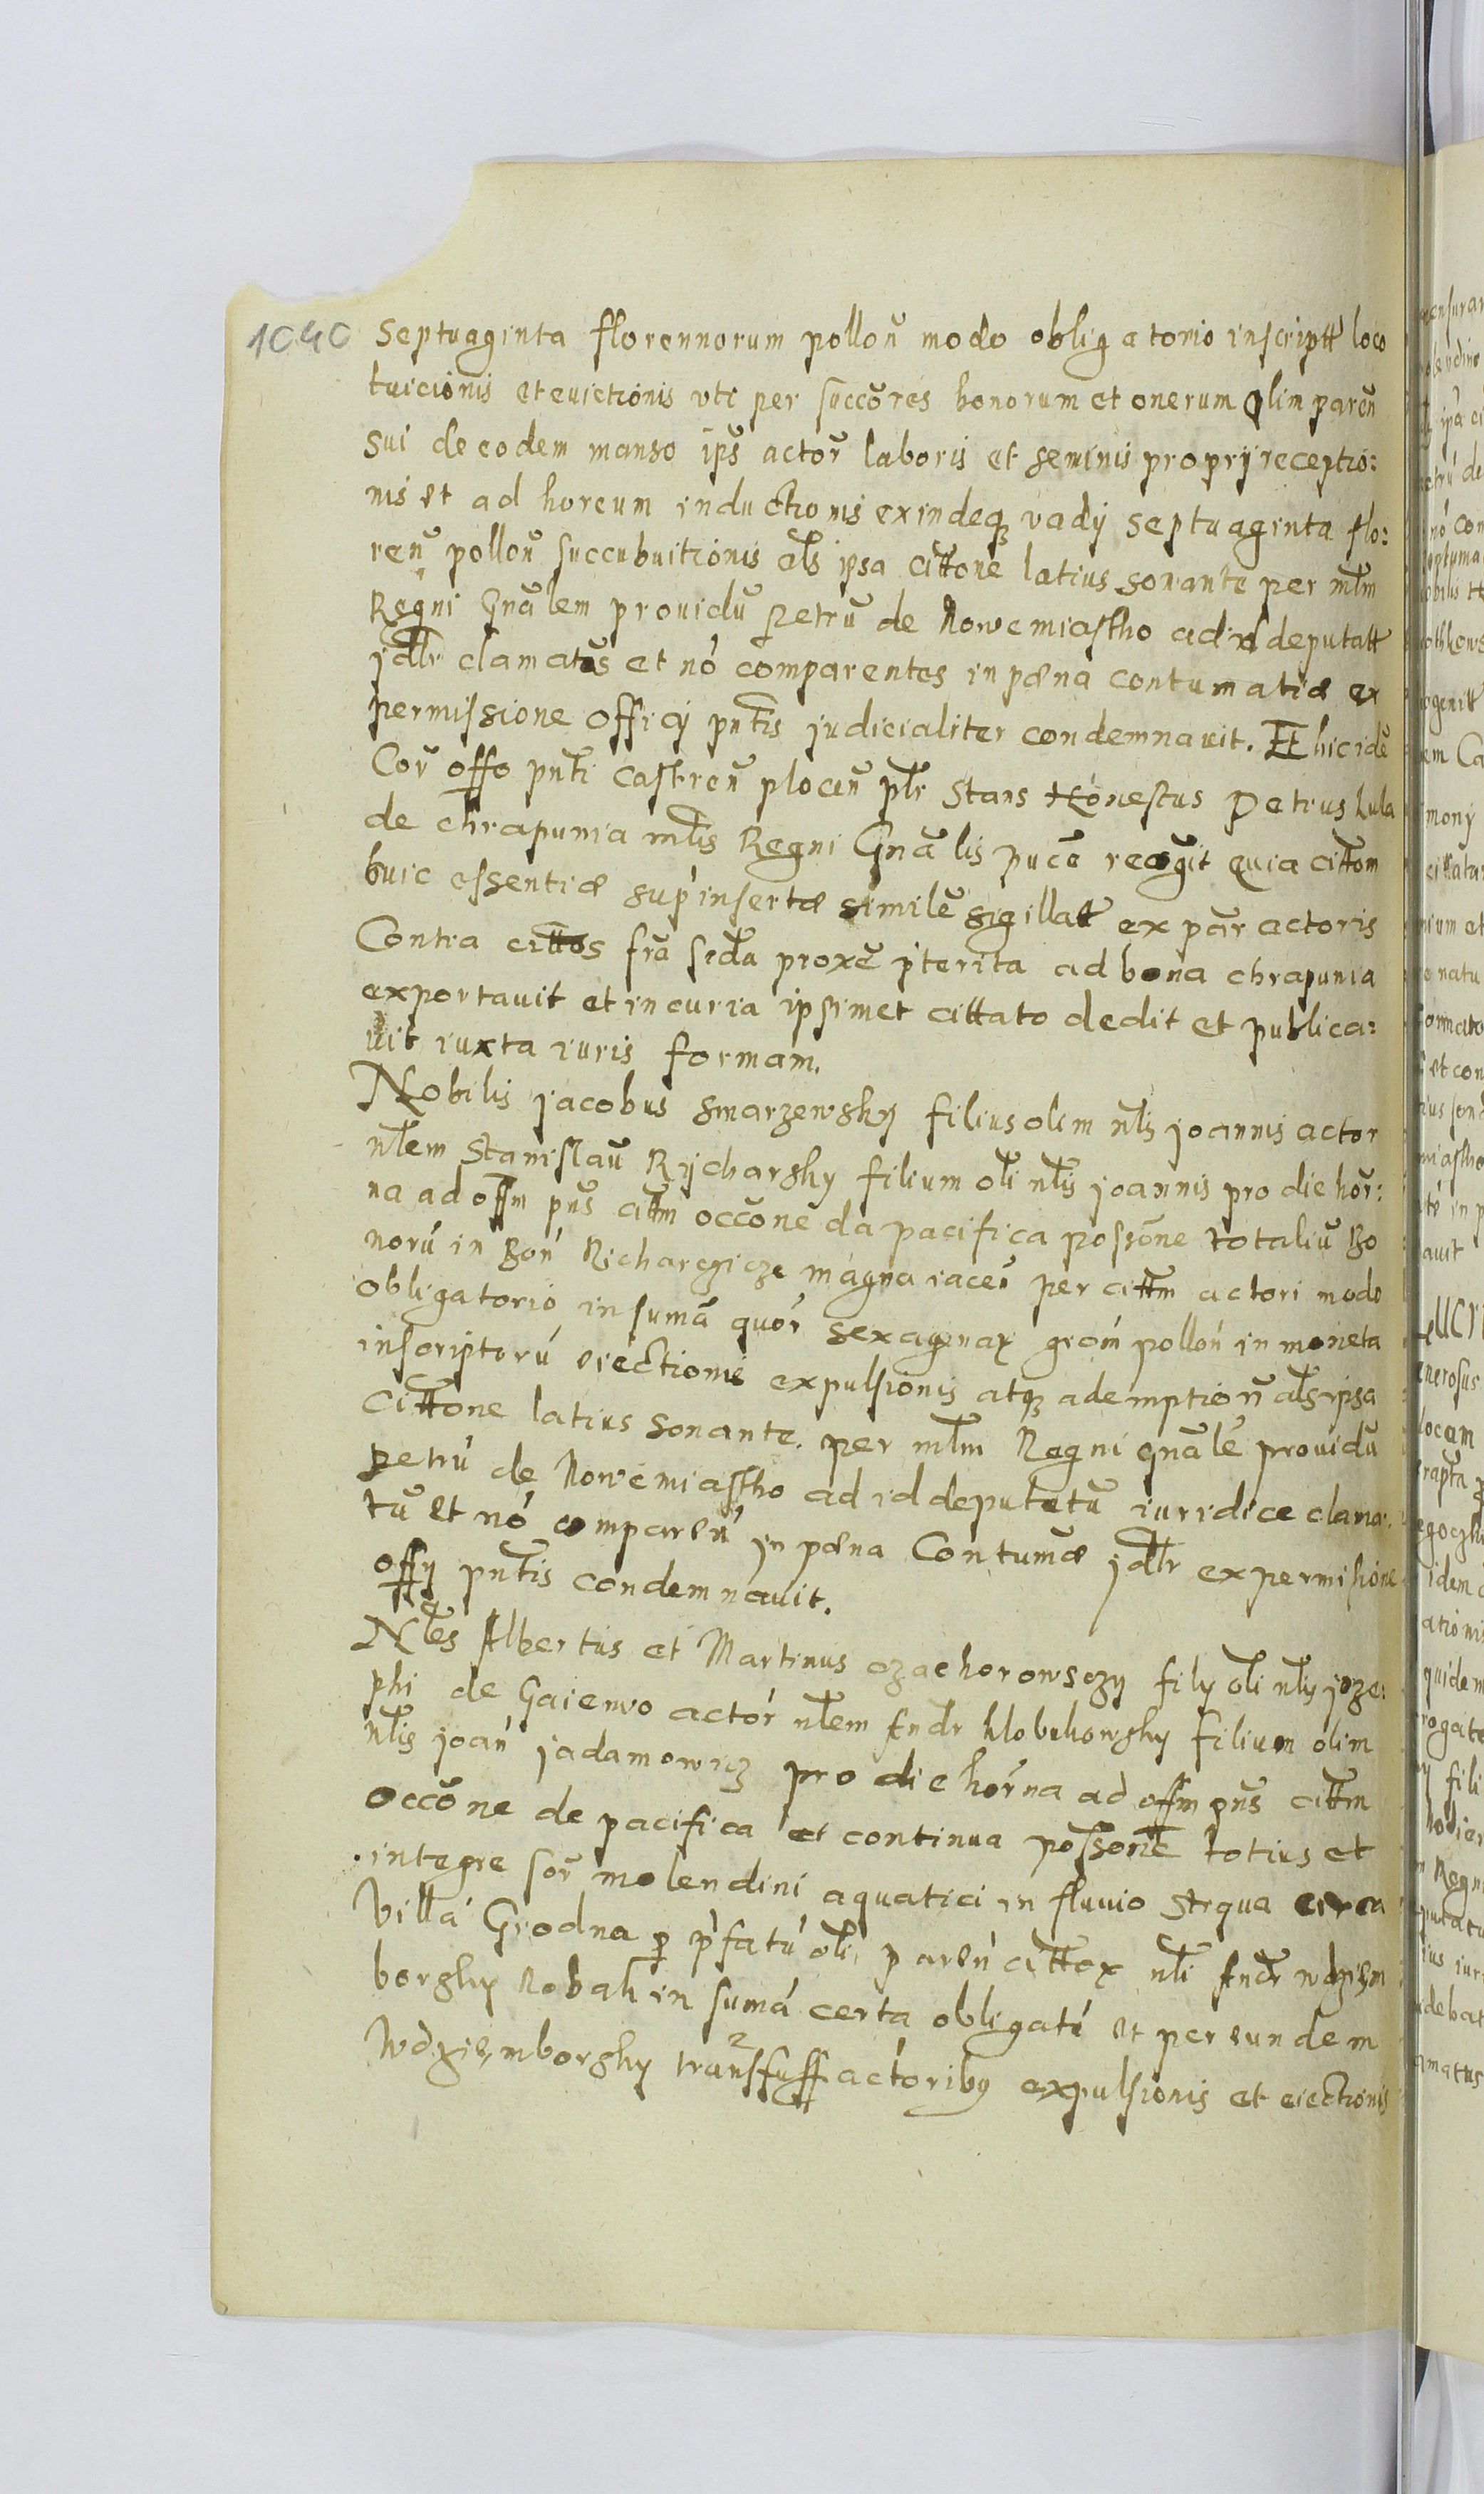 1040
Septuaginta florennorum pollon̄ modo obligatorio inscriptt loco
tuicionis et euictionis vti per succōres bonorum et onerum olim parēn
sui de eodem manso ips̄ actor̄ laboris et seminis proprij receptio:
nis et ad horeum inductionis exindeqȝ vadij septuaginta flo:
ren̄ pollon̄ succubuitionis als̄ ipsa cittōne latius sonante per mlm̄
Regni Gnālem prouidū Petrū de Nowemiastho ad id deputatt
jdlr̄ clamatos et nō comparentes in pæna contumatiæ ex
permissione officij pnt̄is judicialiter condemnauit. Et hic idē
Cor̄ offo pnt̄i castren̄ plocen̄ plr̄ stans Honestus Petrus kula
de chrapunia mlis̄ Regni Gnālis pucē recōgit quia cittōm
huic essentiæ sup' insertæ similē sigillatt ex par̄ actoris
Contra cittos frā sēda proxē pterita ad bona chrapunia
exportauit et in curia ipsimet cittato dedit et publica:
uit iuxta iuris formam.
Nobilis jacobus smarzewsky filius olim nlis̄ joannis actor
nlem̄ Stanislaū Rijcharsky filium oli nlis̄ joannis pro die hōr:
na ad offm pn̄s cittm̄ occōne da pacifica possōne totaliū Bo
norū in Bon̄ Richarczicze magna iacen̄ per cittm̄ actori modo
obligatorio in sumā quor̄ sexagenar̄ grom̄ pollon̄ in moneta
inscriptorū eiectionis expulsionis atqȝ ademption̄ als̄ ipsa
Cittone latius sonante. per mlm̄ Regni gnālē prouidū
petrū de Nowemiastho ad id deputatū iuridice clama:
tū et nō comparen̄ in pæna Contumæ jdlr̄ ex permisione
offij pnt̄is condemnauit.
Nles̄ Albertus et Martinus czachorowsczy filij oli nlis̄ joze:
phi de Gaiewo actor̄ nlem̄ Andr̄ klobukowsky filium olim
nlis̄ joan̄ jadamowicz pro die hōrna ad offm pn̄s cittm̄
occōne de pacifica et continua possōne totius et
integre sor̄ molendini aquatici in fluuio Strqua circa
villā Grodna ꝑ p'fatū oli parēn cittor̄ nli̅ Andr̄ wdziem
borsky Nobali in sumā certa obligatē et per eundem
Wdziemborsky transfuss̄ actoribȝ expulsionis et eiectionis